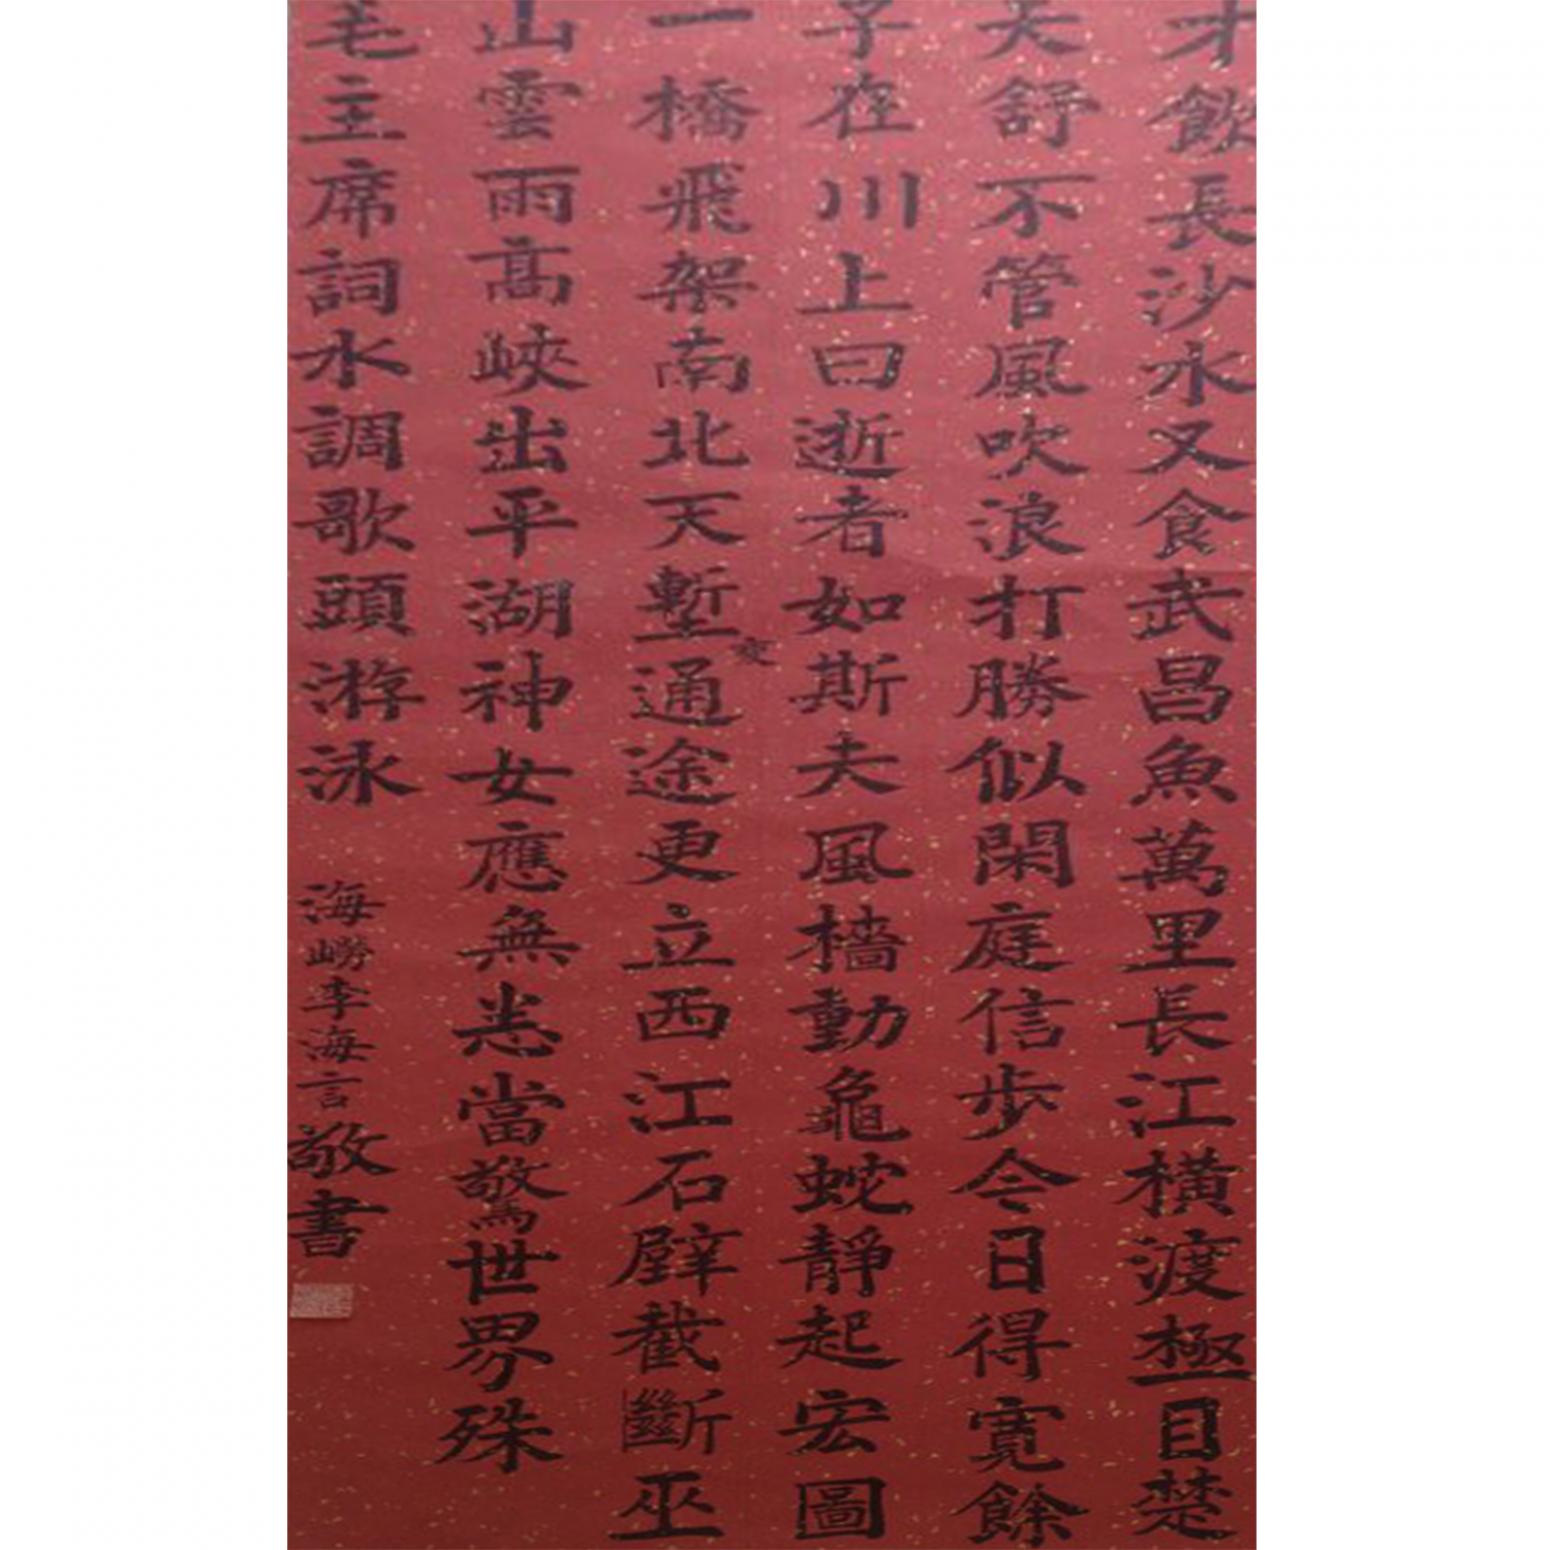 才飲長沙水又食武昌魚萬里長江橫渡極目楚
天舒不管風吹浪打勝似閑庭信步今日得寬餘
子在川上曰逝者如斯夫風檣動龜蛇靜起宏圖
一橋飛架南北天塹变通途更立西江石壁截斷巫
山雲雨髙峽出平湖神女應無恙當驚世界殊
毛主席詞水調歌頭游泳 海嶗李海言敬書